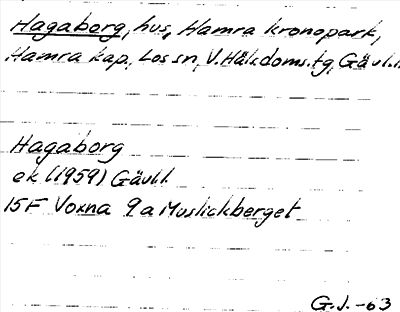 Hagaborg, hus, Hamra kronopark,
Hamra kap., Los sn, V. Häls. doms.tg, Gävl.l.
Hagaborg
ek (1959) Gävl.l
15F Voxna 9a Muslickberget
G.J. -63